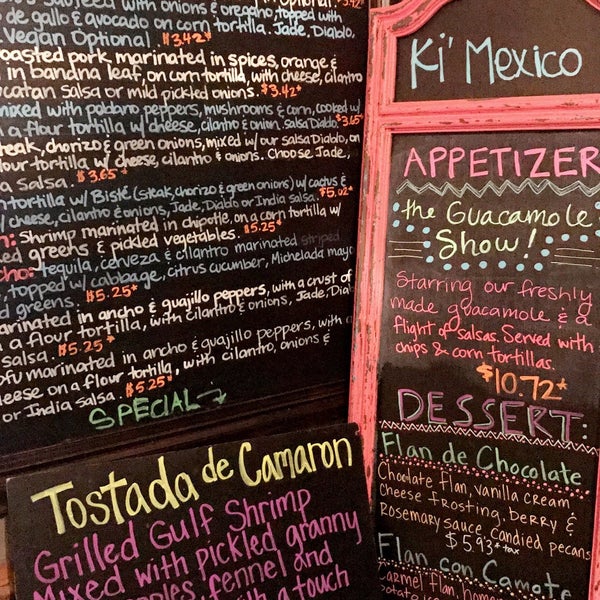 with onions & oregano, topped with
de gallo & avocado on corn tortilla. Jade, Diablo,
Vegan Optional. $3.42*
roasted pork marinated in spices, orange &
in banana leaf, on corn tortilla, with cheese, cilantro
salsa or mild pickled onions. $3.42*
mixed with poblano peppers, mushrooms & corn, cooked w/
a flour tortilla w/ cheese, cilantro & onion. Salsa Diablo, $3.65*
steak, chorizo & green onions, mixed w/ our salsa Diablo, on
flour tortilla w/ cheese, cilantro & onions. Choose Jade,
salsa. $3.65*
tortilla w/ Bisté (steak, chorizo & green onions) w/ cactus &
w/ cheese, cilantro & onions, Jade, Diablo or India salsa. $5.02*
Shrimp marinated in chipotle, on a corn tortilla w/
greens & pickled vegetables. $5.25*
Tequila, cerveza & cilantro marinated striped
topped w/ cabbage, citrus cucumber, Michelada mayo
greens. $5.25*
marinated in ancho & guajillo peppers, with a crust of
a flour tortilla, with cilantro & onions, Jade, Diablo
salsa. $5.25*
marinated in ancho & guajillo peppers, with
cheese on a flour tortilla, with cilantro, onions &
or India salsa. $5.25*
SPECIAL
Tostada de Camaron
Grilled Gulf Shrimp
Mixed with pickled granny
fennel and
a touch
Ki' Mexico
APPETIZER
the Guacamole
Show!
Starring our freshly
made guacamole & a
flight of salsas. Served with
chips & corn tortillas.
$10.72*
DESSERT:
Flan de Chocolate
Chocolate flan, vanilla cream
cheese frosting, berry &
Rosemary sauce, candied pecans
$5.93*tax
Flan con Camote